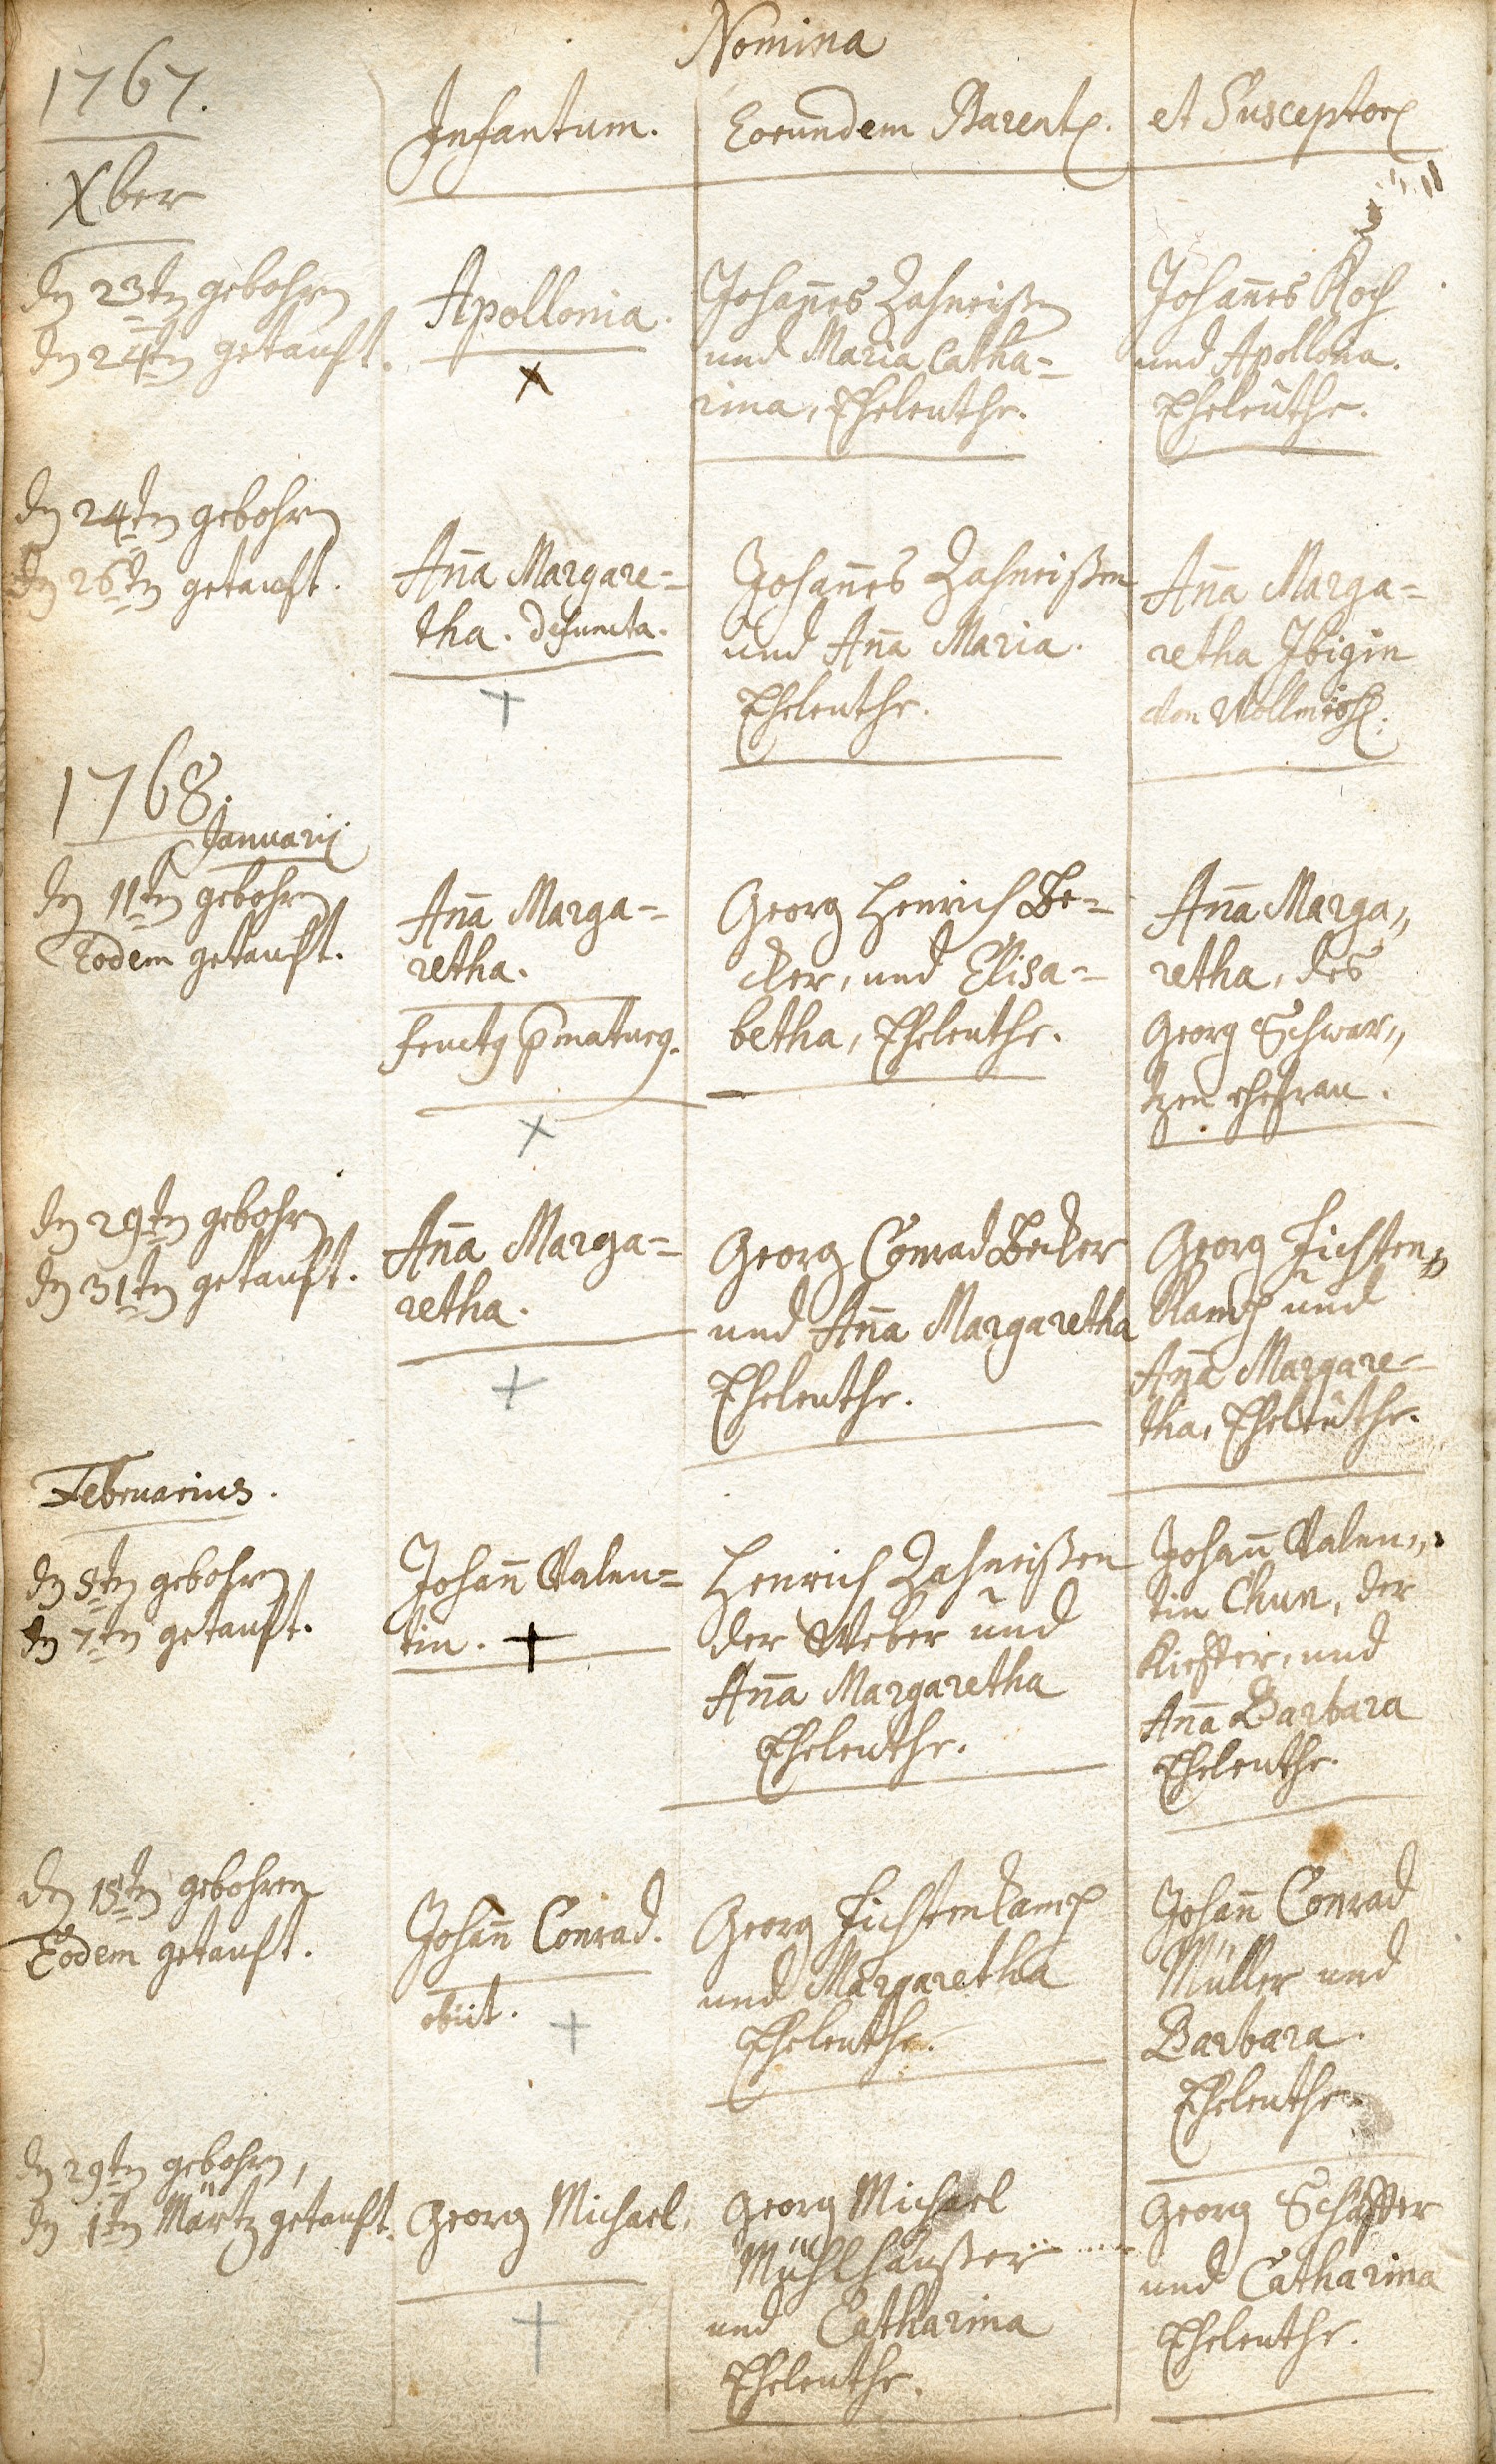 Nomina
1767.
Infantum.
Eorundem Parent.
et Susceptor
Xber
den 23ten gebohren
den 24ten getauft.
Apollonia.
Johanes Zahneißen
und Maria Catha=
rina, Eheleuthe.
Johanes Koch
und Apollonia.
Eheleuthe.
den 24ten gebohren
den 26ten getauft.
Aña Margare=
tha. defuncta.
Johanes Zahneißen
und Aña Maria.
Eheleuthe.
Aña Marga=
retha Ibigin
1768.
Januarij
den 11ten gebohren
Eodem getauft.
Aña Marga=
retha.
Georg Henrich Be=
cker, und Elisa=
betha, Eheleuthe.
Aña Marga„
retha, des
Georg Schwar„
tzen ehefrau.
den 29ten gebohren
den 31ten getauft.
Aña Marga=
retha.
Georg Conrad Becker
und Aña Margaretha
Eheleuthe.
Georg Fichten„
Kamp und
Aña Margare=
tha, Eheleuthe.
Februarius.
den 5ten gebohren
den 7ten getauft.
Johañ Valen=
tin.
Henrich Zahneißen
der Weber und
Aña Margaretha
Eheleuthe.
Johañ Valen„
tin Chun, der
Kieffer, und
Aña Barbara
Eheleuthe.
den 15ten gebohren
Eodem getauft.
Johañ Conrad.
obiit.
Georg Fichtenkamp
und Margaretha
Eheleuthe.
Johañ Conrad
Müller und
Barbara.
Eheleuthe.
den 29ten gebohren,
den 1ten Märtz getauft.
Georg Michael.
Georg Michael
Mühlhaußer
und Catharina
Eheleuthe.
Georg Schäffer
und Catharina
Eheleuthe.